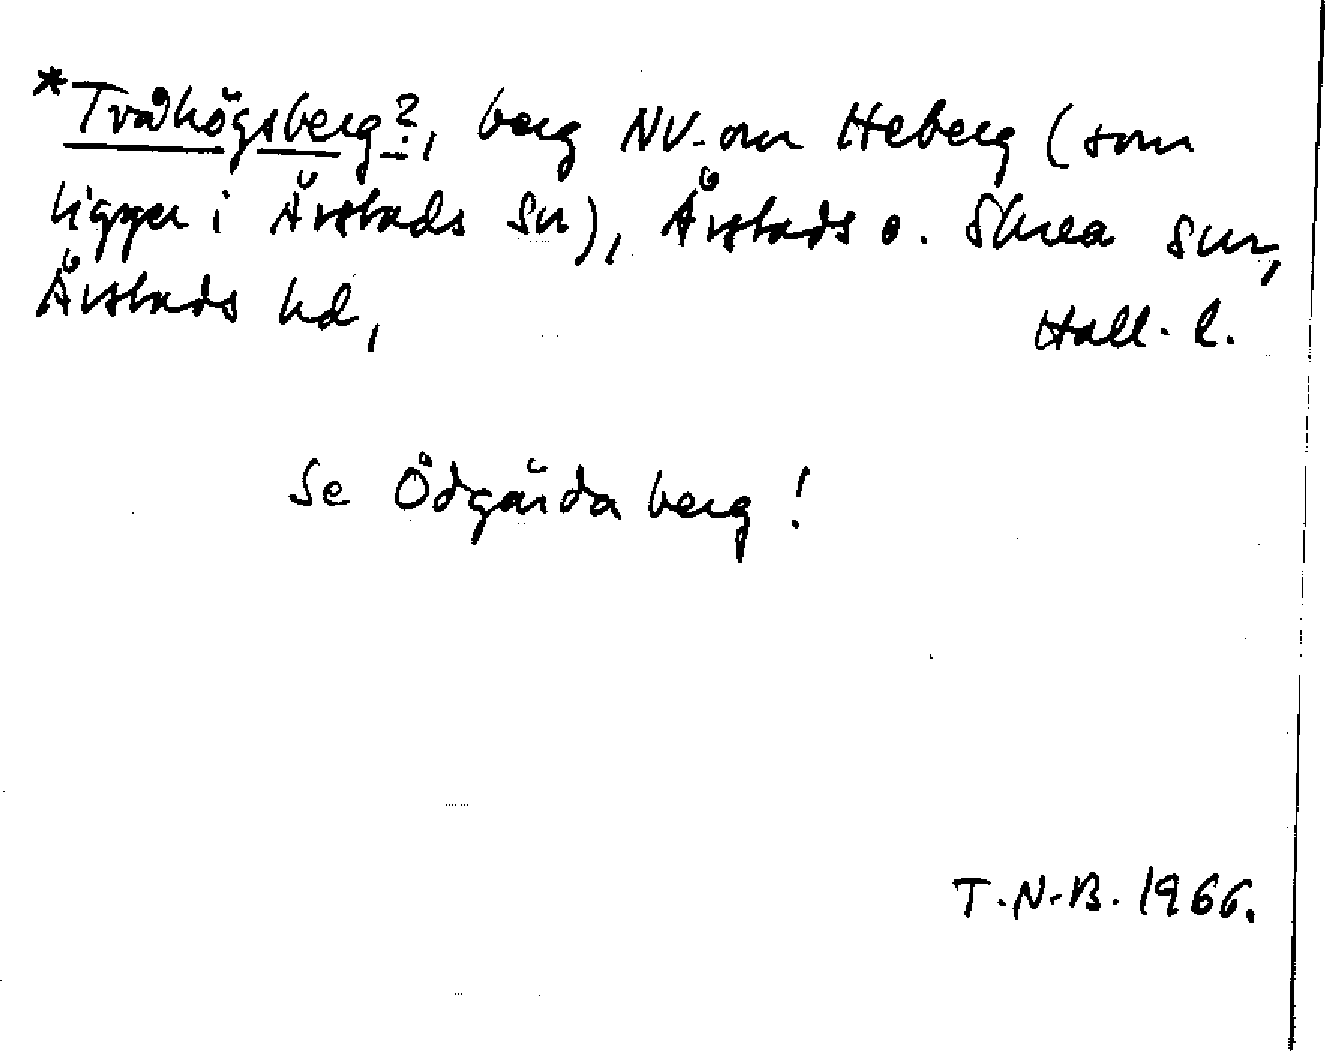 *Tvåhögsberg?, berg NV om Heberg (som
ligger i Årstads sn), Årstads o. Skrea snr,
Årstads hd,
Hall. l.
Se Ödgärda berg!
T.N.B. 1966.